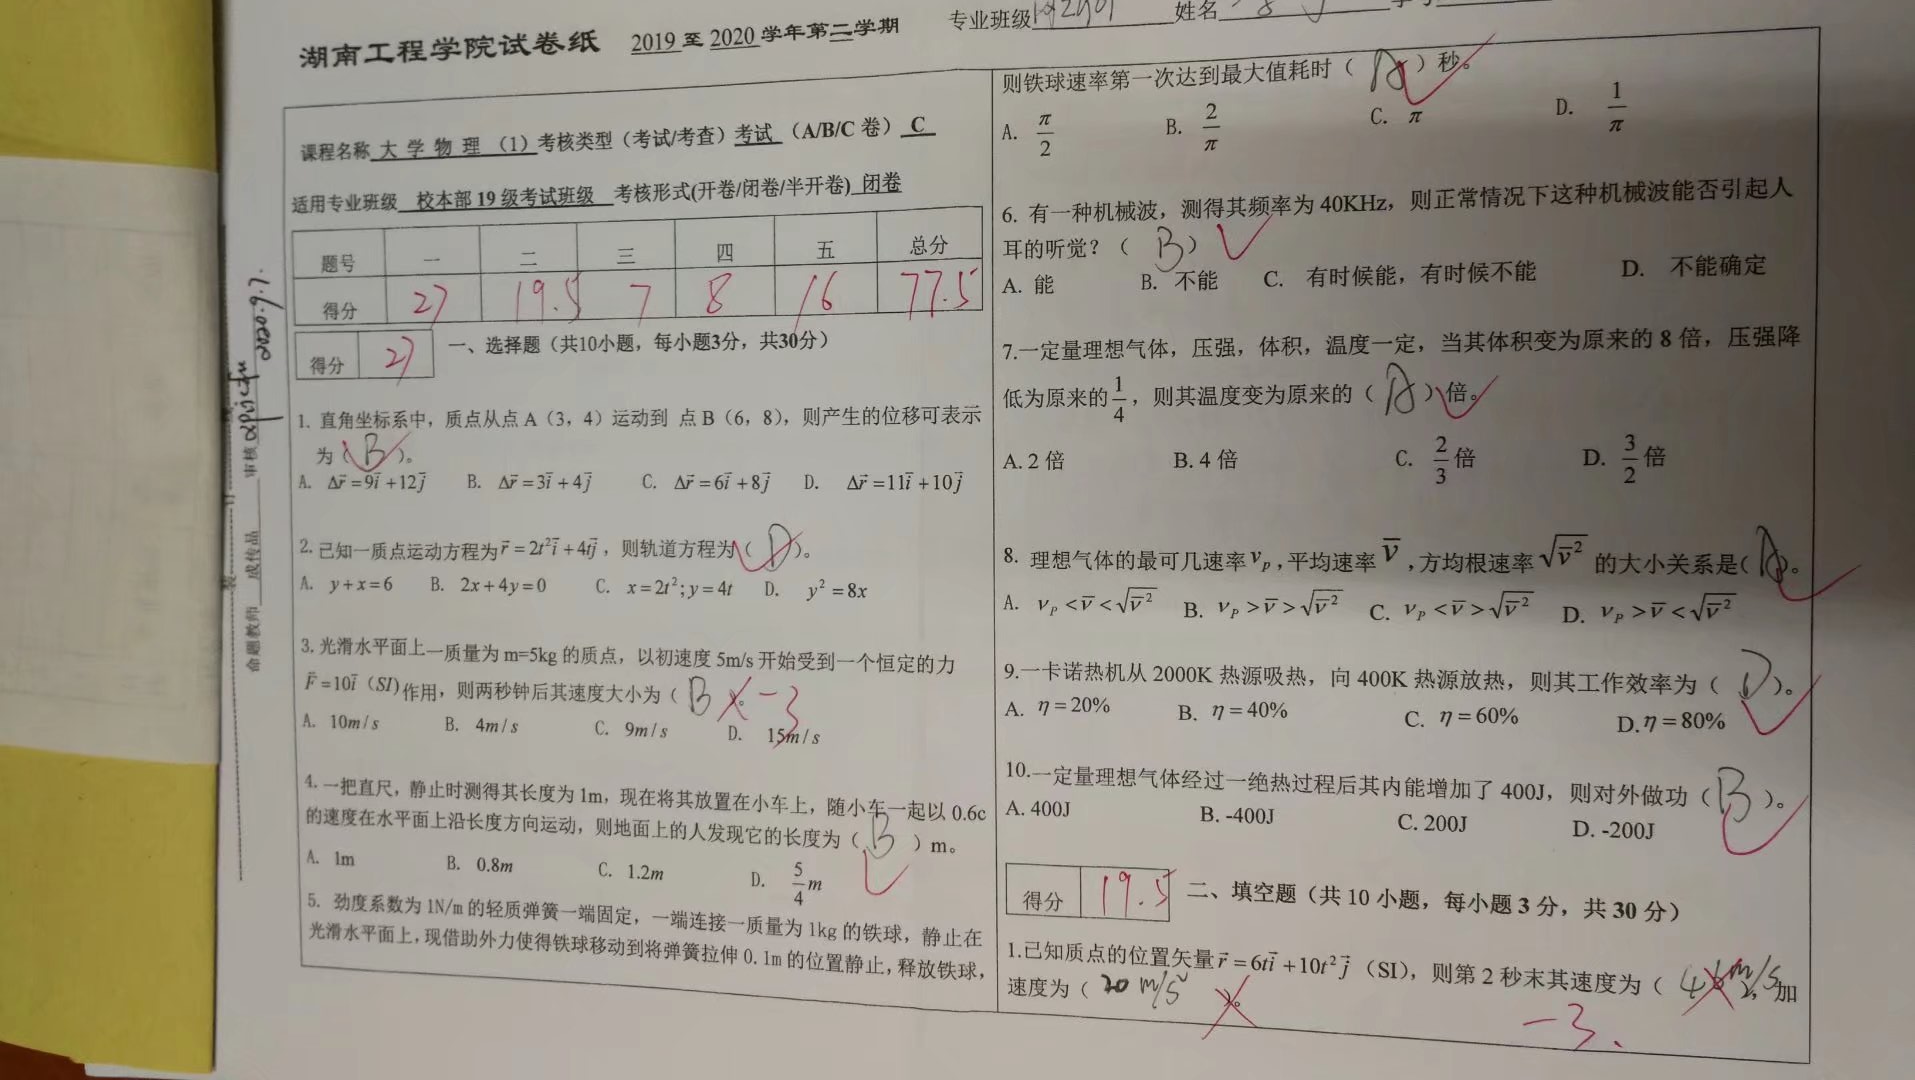 湖南工程学院试卷纸 2019 至 2020 学年第二学期 专业班级 姓名
课程名称 大 学 物 理 (1) 考核类型（考试/考查）考试 （A/B/C 卷） C
适用专业班级 校本部 19 级考试班级 考核形式(开卷/闭卷/半开卷) 闭卷
题号 一 二 三 四 五 总分
得分 27 19.5 7 8 16 77.5
得分 27 一、选择题（共10小题，每小题3分，共30分）
1. 直角坐标系中，质点从点 A（3，4）运动到 点 B（6，8），则产生的位移可表示
为（ B ）。
A. Δr⃗ =9i⃗ +12j⃗ B. Δr⃗ =3i⃗ +4j⃗ C. Δr⃗ =6i⃗ +8j⃗ D. Δr⃗ =11i⃗ +10j⃗
2. 已知一质点运动方程为 r⃗ = 2t²i⃗ + 4tj⃗ ，则轨道方程为（ D ）。
A. y+x=6 B. 2x+4y=0 C. x=2t²; y=4t D. y²=8x
3. 光滑水平面上一质量为 m=5kg 的质点，以初速度 5m/s 开始受到一个恒定的力
F⃗ =10i⃗ (SI) 作用，则两秒钟后其速度大小为（ B ）。 -3
A. 10m/s B. 4m/s C. 9m/s D. 15m/s
4. 一把直尺，静止时测得其长度为 1m，现在将其放置在小车上，随小车一起以 0.6c
的速度在水平面上沿长度方向运动，则地面上的人发现它的长度为（ B ）m。
A. 1m B. 0.8m C. 1.2m D. 5/4 m
5. 劲度系数为 1N/m 的轻质弹簧一端固定，一端连接一质量为 1kg 的铁球，静止在
光滑水平面上，现借助外力使得铁球移动到将弹簧拉伸 0.1m 的位置静止，释放铁球，
命题教师 成传品 审核 2020.9.7.
装 订 线
则铁球速率第一次达到最大值耗时（ A ）秒。
A. π/2 B. 2/π C. π D. 1/π
6. 有一种机械波，测得其频率为 40KHz，则正常情况下这种机械波能否引起人
耳的听觉？（ B ）
A. 能 B. 不能 C. 有时候能，有时候不能 D. 不能确定
7.一定量理想气体，压强，体积，温度一定，当其体积变为原来的 8 倍，压强降
低为原来的 1/4 ，则其温度变为原来的（ A ）倍。
A. 2 倍 B. 4 倍 C. 2/3 倍 D. 3/2 倍
8. 理想气体的最可几速率 vₚ ,平均速率 v̄ ,方均根速率 √v̄² 的大小关系是( A )。
A. vₚ < v̄ < √v̄² B. vₚ > v̄ > √v̄² C. vₚ < v̄ > √v̄² D. vₚ > v̄ < √v̄²
9.一卡诺热机从 2000K 热源吸热，向 400K 热源放热，则其工作效率为（ D ）。
A. η=20% B. η=40% C. η=60% D. η=80%
10.一定量理想气体经过一绝热过程后其内能增加了 400J，则对外做功（ B ）。
A. 400J B. -400J C. 200J D. -200J
得分 19.5 二、填空题（共 10 小题，每小题 3 分，共 30 分）
1.已知质点的位置矢量 r⃗ = 6ti⃗ +10t²j⃗ （SI），则第 2 秒末其速度为（ m/s ），加
速度为（ 20 m/s² ）。
-3